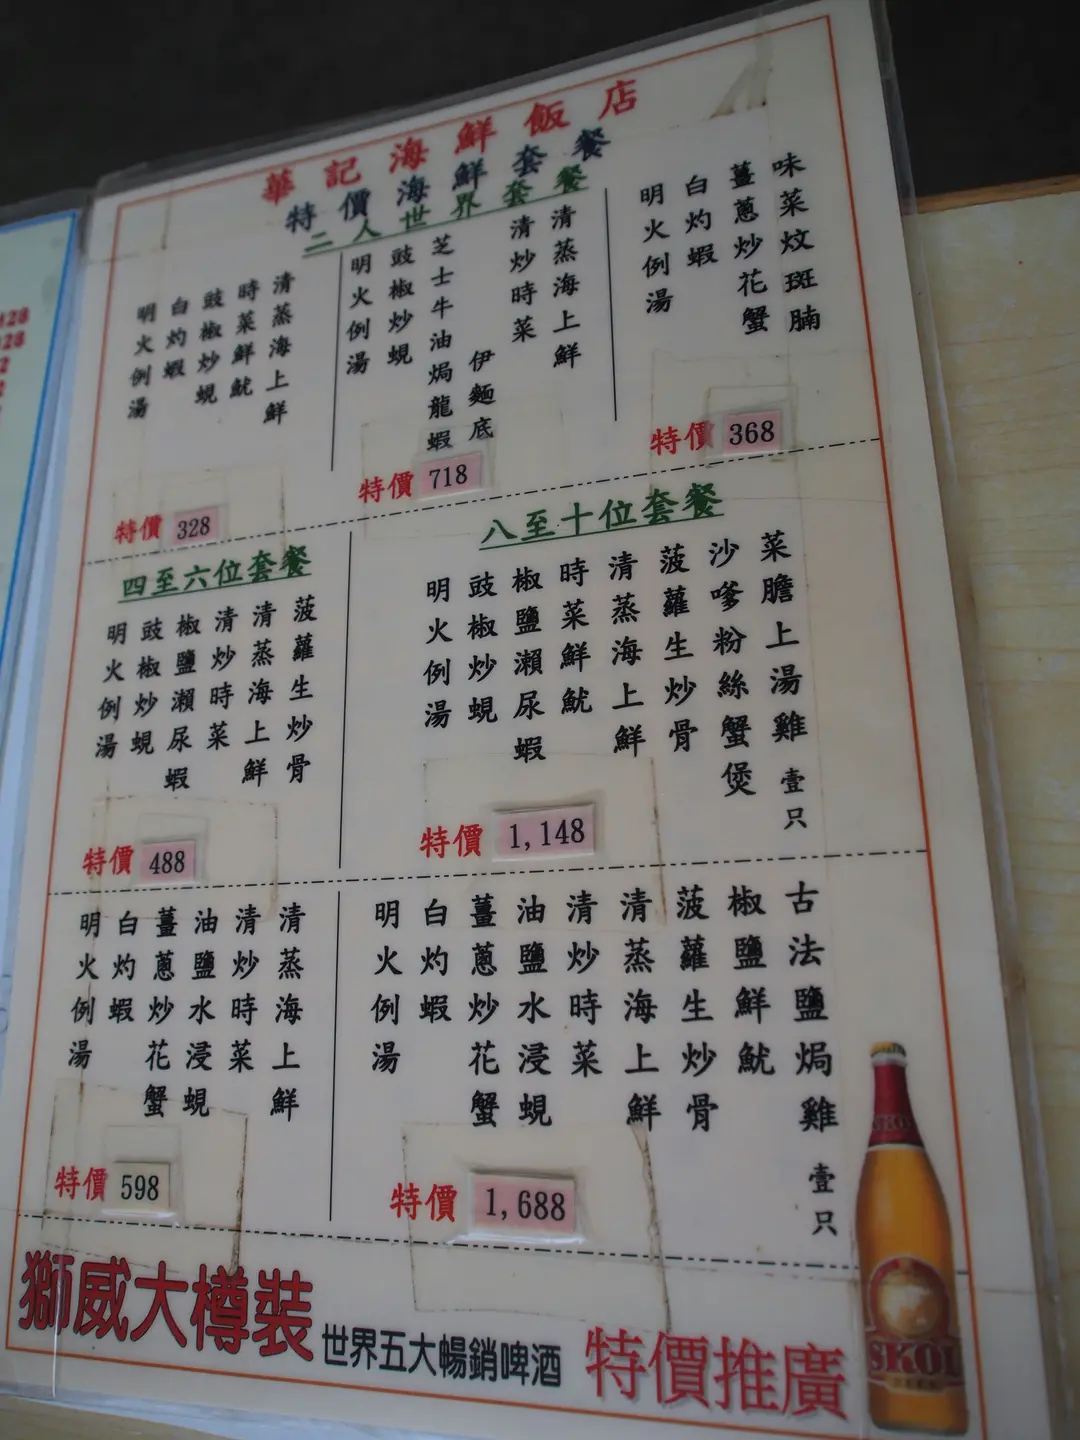 華記海鮮飯店
特價海鮮套餐
二人世界套餐
味菜炆斑腩
薑蔥炒花蟹
白灼蝦
明火例湯
特價 368
清蒸海上鮮
清炒時菜
伊麵底
芝士牛油焗龍蝦
豉椒炒蜆
明火例湯
特價 718
清蒸海上鮮
時菜鮮魷
豉椒炒蜆
白灼蝦
明火例湯
特價 328
八至十位套餐
菜膽上湯雞 壹只
沙嗲粉絲蟹煲
菠蘿生炒骨
清蒸海上鮮
時菜鮮魷
椒鹽瀨尿蝦
豉椒炒蜆
明火例湯
特價 1,148
四至六位套餐
菠蘿生炒骨
清蒸海上鮮
清炒時菜
椒鹽瀨尿蝦
豉椒炒蜆
明火例湯
特價 488
古法鹽焗雞 壹只
椒鹽鮮魷
菠蘿生炒骨
清蒸海上鮮
清炒時菜
油鹽水浸蜆
薑蔥炒花蟹
白灼蝦
明火例湯
特價 1,688
清蒸海上鮮
清炒時菜
油鹽水浸蜆
薑蔥炒花蟹
白灼蝦
明火例湯
特價 598
獅威大樽裝
世界五大暢銷啤酒
特價推廣
SKOL